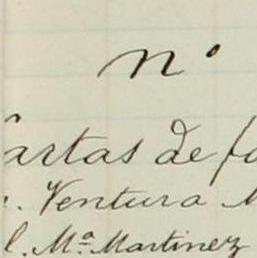 n.º
artas de fa
r. Ventura M
l. Mª Martinez